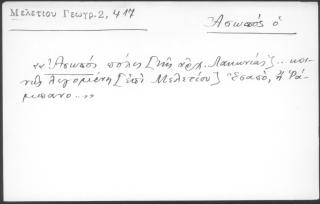 Μελετίου Γεωγρ.2, 417
Ἀσωπός ὁ
"Ἀσωπός πόλις [τῆς ἀρχ. Λακωνίας]... κοι-
νῶς λεγομένη [ἐπὶ Μελετίου] Ἐσαπό, ἢ Ῥά-
μπανο..."